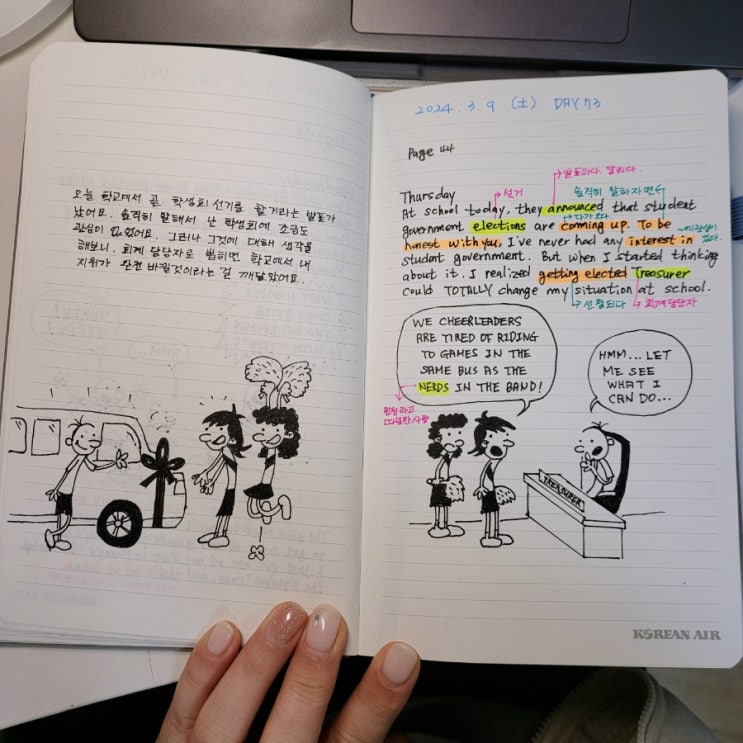 오늘 학교에서 곧 학생회 선거를 할거라는 발표가
났어요. 솔직히 말해서 난 학생회에 조금도
관심이 없었어요. 그러나 그것에 대해 생각을
해보니, 회계 담당자로 뽑히면 학교에서 내
지위가 완전 바뀔것이라는 걸 깨달았어요.
2024. 3. 9 (土) DAY 73
Page 44
발표하다. 알리다.
선거
솔직히 말하자면
Thursday
At school today, they announced that student
다가오다
government elections are coming up. To be
honest with you, I've never had any interest in
student government. But when I started thinking
about it. I realized getting elected Treasurer
could TOTALLY change my situation at school.
선출되다
회계담당자
WE CHEERLEADERS
ARE TIRED OF RIDING
TO GAMES IN THE
SAME BUS AS THE
NERDS IN THE BAND!
HMM... LET
ME SEE
WHAT I
CAN DO...
사람
TREASURER
KOREAN AIR